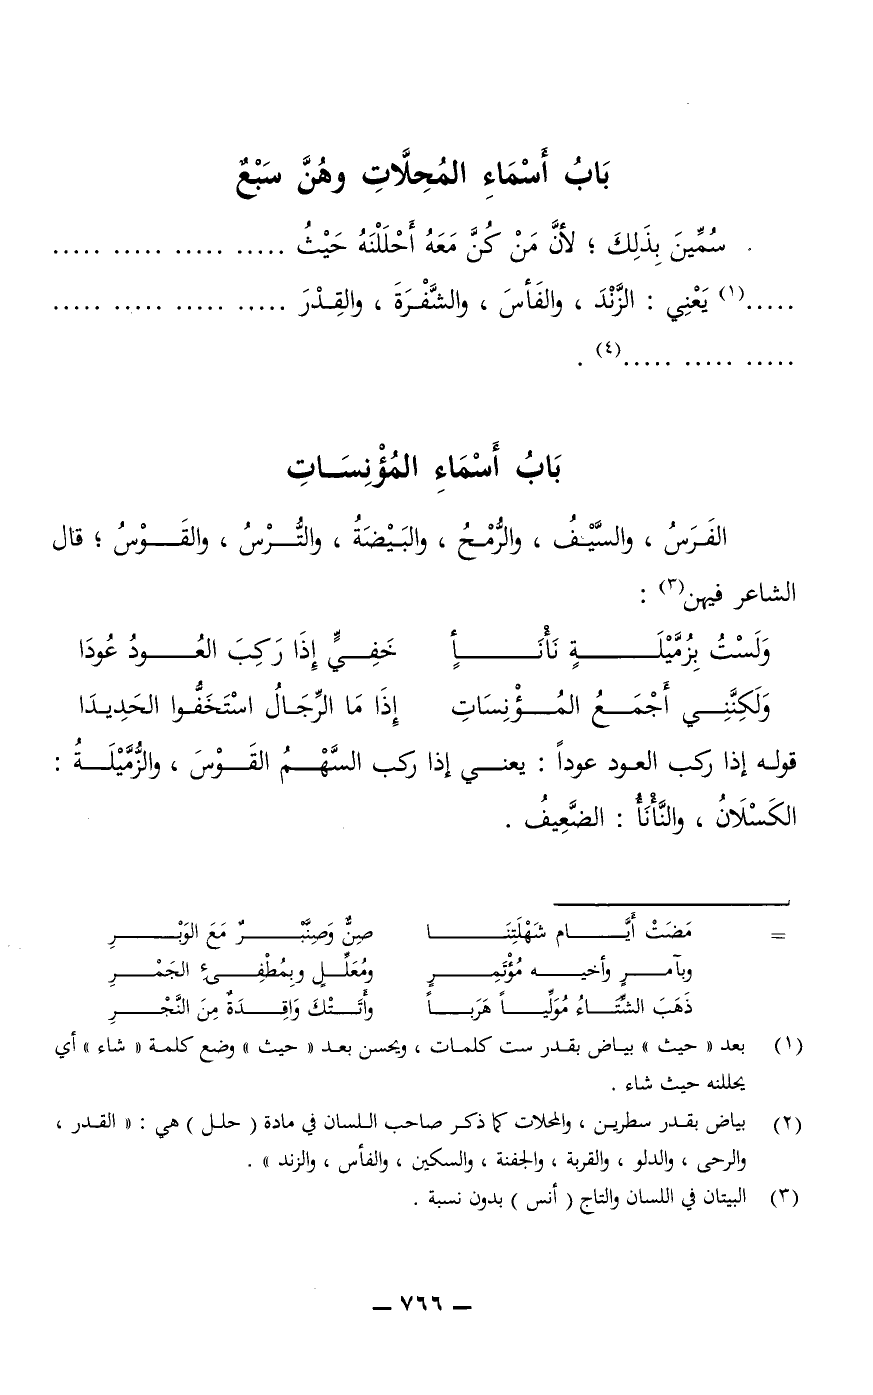 بَابُ أَسْمَاءِ المُحِلَّاتِ وهُنَّ سَبْعٌ
سُمِّينَ بِذَلِكَ ؛ لأنَّ مَنْ كُنَّ مَعَهُ أَحْلَلْنَهُ حَيْثُ ..... ..... ..... .....
.....(١) يَعْنِي : الزَّنْدَ ، والفَأسَ ، والشَّفْرَةَ ، والقِدْرَ ..... ..... ..... .....
..... ..... .....(٤) .
بَابُ أَسْمَاءِ المُؤْنِسَاتِ
الفَرَسُ ، والسَّيْفُ ، والرُّمْحُ ، والبَيْضَةُ ، والتُّرْسُ ، والقَوْسُ ؛ قال
الشاعر فيهن(٣) :
وَلَسْتُ بِزُمَّيْلَةٍ نَأْنَأٍ خَفِيٍّ إِذَا رَكِبَ العُودُ عُودَا
وَلَكِنَّنِي أَجْمَعُ المُؤْنِسَاتِ إِذَا مَا الرِّجَالُ اسْتَخَفُّوا الحَدِيدَا
قوله إذا ركب العود عوداً : يعني إذا ركب السَّهْمُ القَوْسَ ، والزُّمَّيْلَةُ :
الكَسْلَانُ ، والنَّأْنَأُ : الضَّعِيفُ .
= مَضَتْ أَيَّام شَهْلَتِنَا صِنٌّ وَصِنَّبْرٌ مَعَ الوَبْرِ
وبآمرٍ وأخيه مُؤْتَمِرٍ ومُعَلِّلٍ وبِمُطْفِىءِ الجَمْرِ
ذَهَبَ الشِّتَاءُ مُوَلِّياً هَرَباً وأَتَتْكَ وَاقِدَةٌ مِنَ النَّجْرِ
(١) بعد « حيث » بياض بقدر ست كلمات ، ويحسن بعد « حيث » وضع كلمة « شاء » أي
يحللنه حيث شاء .
(٢) بياض بقدر سطرين ، والمحلات كما ذكر صاحب اللسان في مادة ( حلل ) هي : « القدر ،
والرحى ، والدلو ، والقربة ، والجفنة ، والسكين ، والفأس ، والزند » .
(٣) البيتان في اللسان والتاج ( أنس ) بدون نسبة .
— ٧٦٦ —